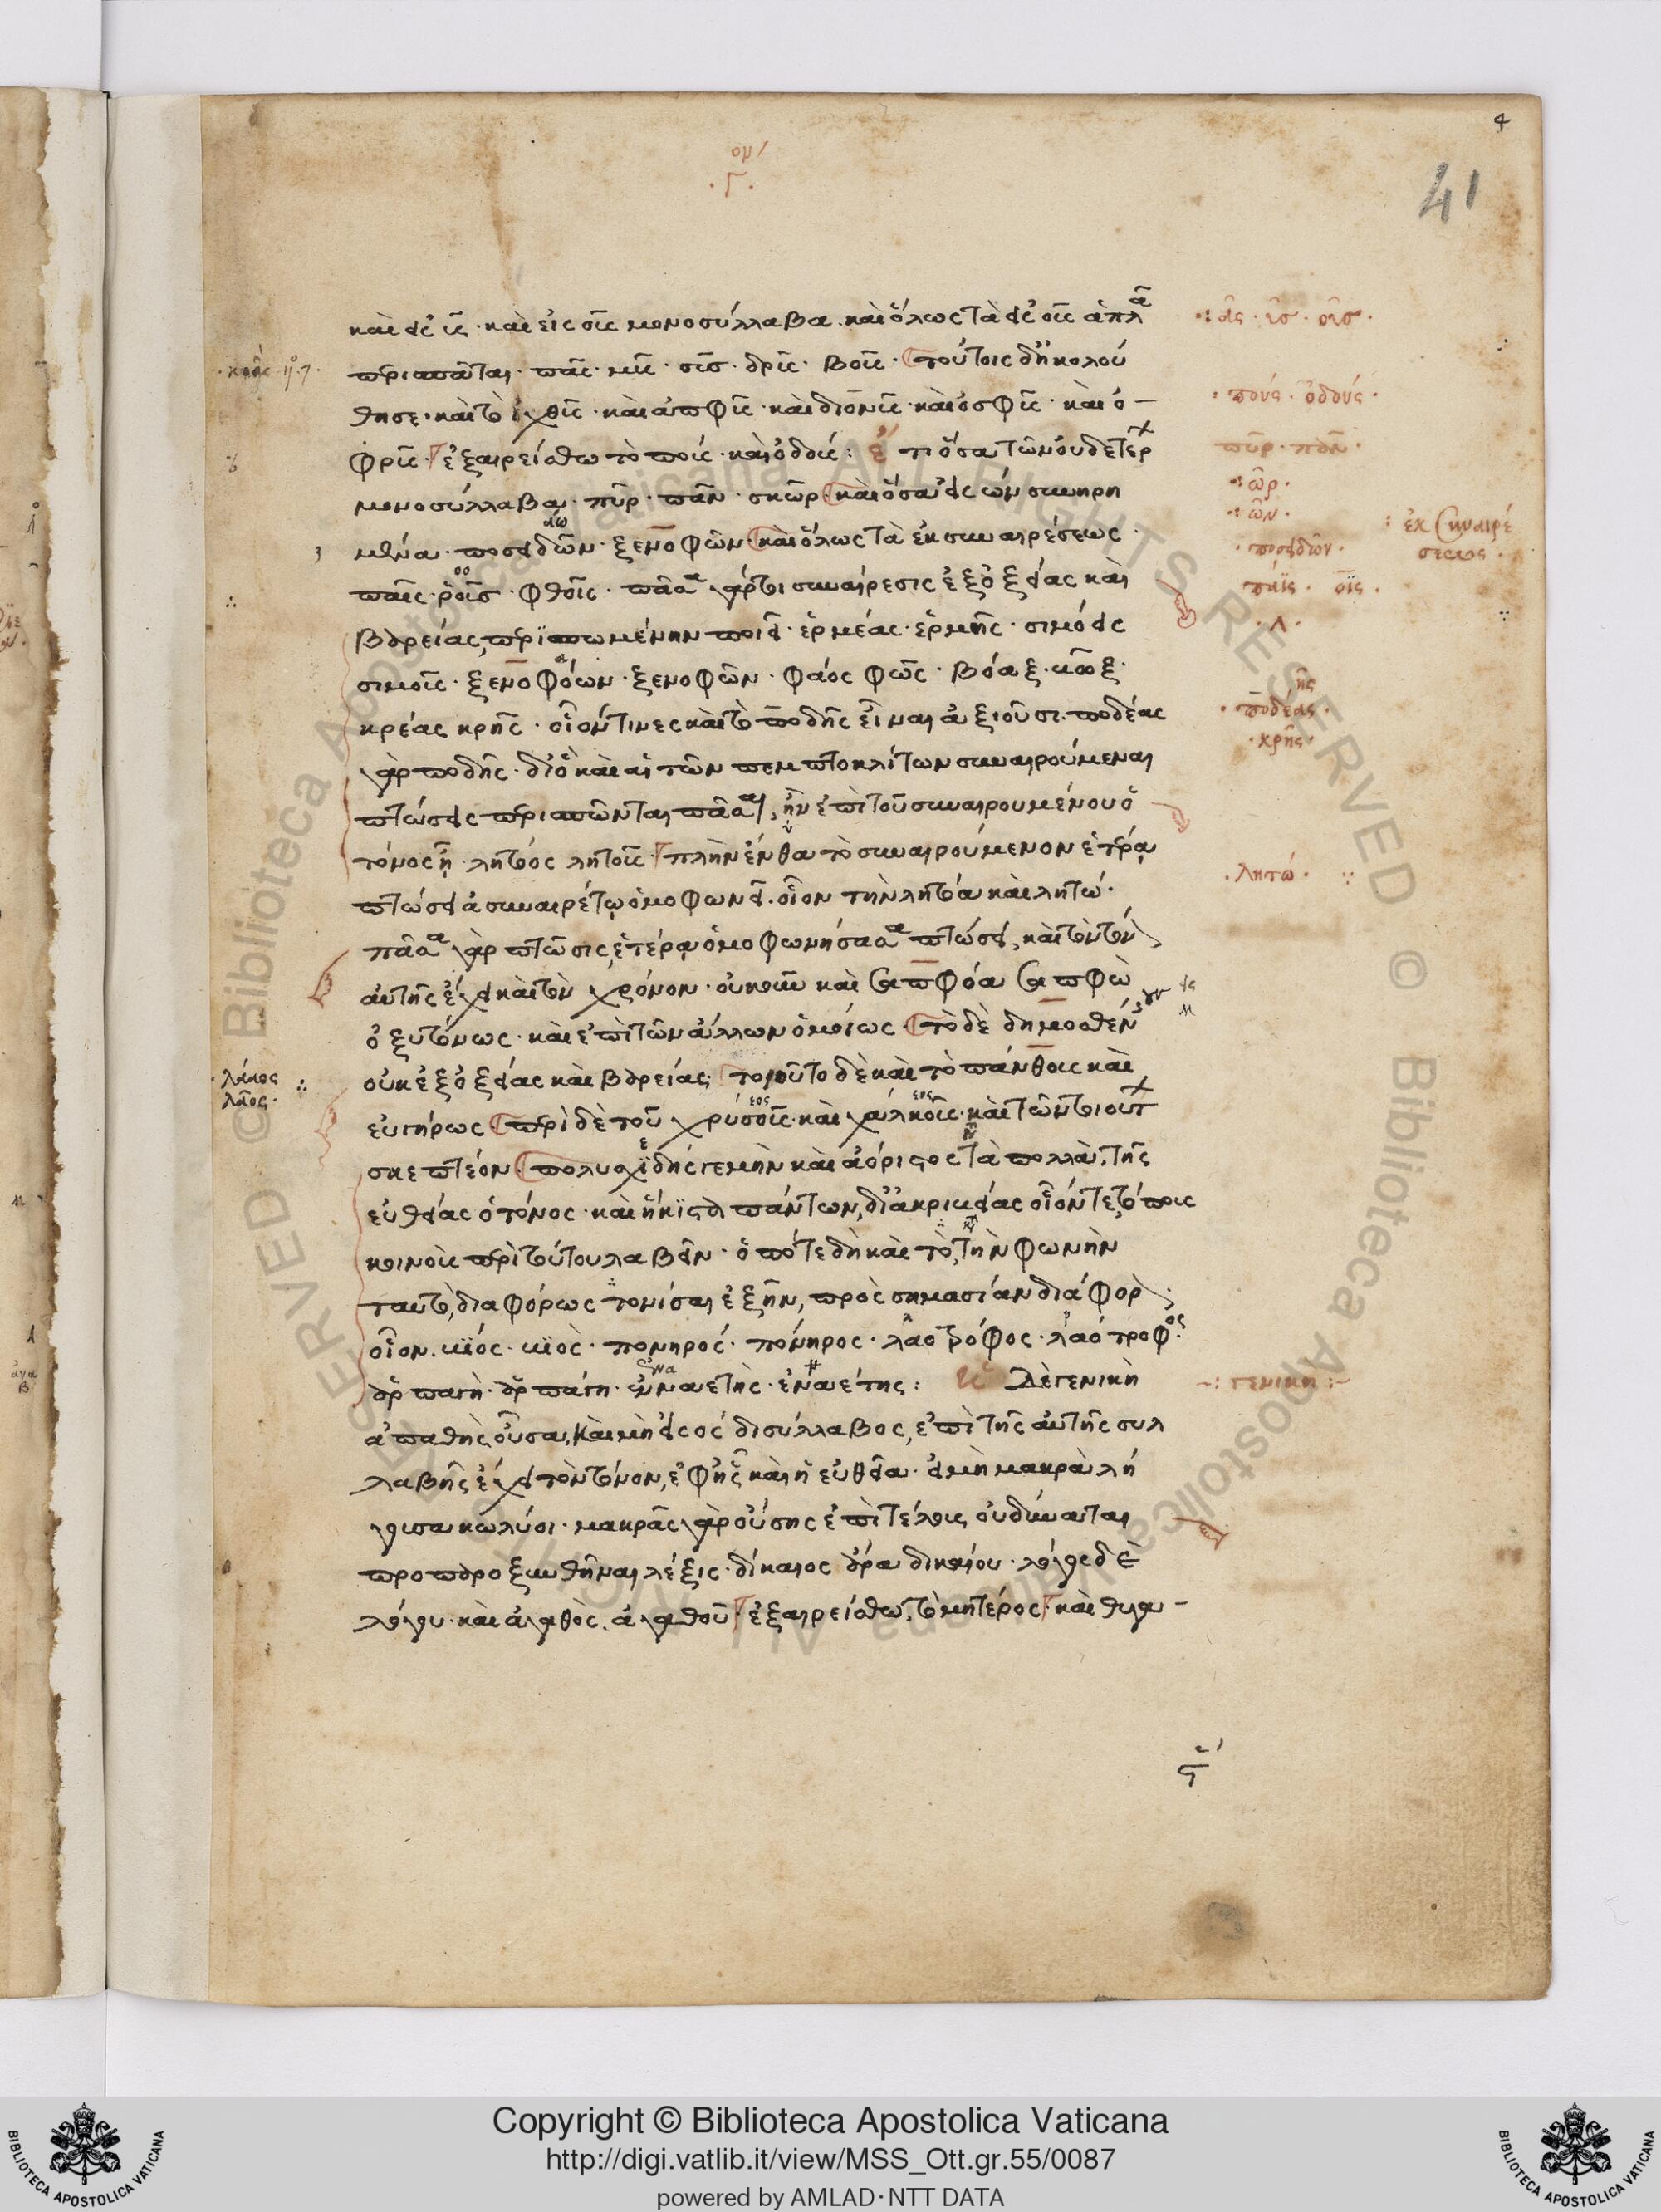 41
καὶ εἰς υς · καὶ εἰς ους μονοσύλλαβα · καὶ ὅλως τὰ εἰς ους ἁπλᾶ
περισπᾶται · παῖς · μῦς · σῦς · δρῦς · βοῦς · τούτοις δ' ἠκολού
θησε · καὶ τὸ ἰχθῦς · καὶ ἀπφῦς · καὶ διονῦς · καὶ ὀσφῦς · καὶ ὀ –
φρῦς · ἐξαιρείσθω τὸ πούς · καὶ ὀδούς : ἔτι ὅσα τῶν οὐδετέρων
μονοσύλλαβα · πῦρ · πᾶν · σκῶρ · καὶ ὅσα εἰς ων συνηρη
μένα · ποσειδῶν · ξενοφῶν · καὶ ὅλως τὰ ἐκ συναιρέσεως ·
παῖς · ῥοῦς · φθοῖς · πᾶσα γάρ τοι συναίρεσις ἐξ ὀξείας καὶ
βαρείας, περισπωμένην ποιεῖ · ἑρμέας · ἑρμῆς · σιμόεις
σιμοῦς · ξενοφόων · ξενοφῶν · φάος φῶς · βόαξ · βῶξ ·
κρέας κρῆς · οἷόν τινες καὶ τὸ ποδῆς εἶναι ἀξιοῦσι · ποδέας
γὰρ ποδῆς · διὸ καὶ αἱ τῶν πεμπτοκλίτων συναιρούμεναι
πτώσεις περισπῶνται πᾶσαι, ἢν ἐπὶ τοῦ συναιρουμένου ὁ
τόνος ᾖ · λητόος λητοῦς · πλὴν ἔνθα τὸ συναιρούμενον ἑτέρᾳ
πτώσει ἀσυναιρέτῳ ὁμοφωνεῖ · οἷον τὴν λητόα καὶ λητώ ·
πᾶσα γὰρ πτῶσις, ἑτέρᾳ ὁμοφωνήσασα πτώσει, καὶ τὸν τόνον
αὐτῆς ἔχει καὶ τὸν χρόνον · οὐκοῦν καὶ σαπφόα σαπφὼ
ὀξυτόνως · καὶ ἐπὶ τῶν ἄλλων ὁμοίως · τὸ δὲ δημοσθένην
οὐκ ἐξ ὀξείας καὶ βαρείας · τοιοῦτο δὲ καὶ τὸ πάνθους καὶ
εὐγήρως · περὶ δὲ τοῦ χρυσοῦς · καὶ χαλκοῦς · καὶ τῶν τοιούτων
σκεπτέον · πολυσχιδής γε μὴν καὶ ἀόριστος τὰ πολλὰ, τῆς
εὐθείας ὁ τόνος · καὶ ἥκιστα πάντων, δι' ἀκριβείας οἷόν τε τόπους
κοινοὺς περὶ τούτου λαβεῖν · ὁπότε δὴ καὶ τὸ, τὴν φωνὴν
ταὐτὸ, διαφόρως τονίσαι ἐξῆν, πρὸς σημασίαν διάφορον
οἷον · πονηρός · πόνηρος · λαοτρόφος · λαότροφος ·
ἁρπαγή · ἁρπάγη · ἐνναετής · ἐνναέτης : ἡ δὲ γενικὴ
ἀπαθὴς οὖσα, καὶ μὴ εἰς ος δισύλλαβος, ἐπὶ τῆς αὐτῆς συλ
λαβῆς ἔχει τὸν τόνον, ἐφ' ἧς καὶ ἡ εὐθεῖα · εἰ μὴ μακρὰ λή
γουσα κωλύοι · μακρᾶς γὰρ οὔσης ἐπὶ τέλους οὐ δύναται
προπαροξυνθῆναι λέξις · δίκαιος ἄρα δικαίου · λόγος δὲ
λόγου · καὶ ἀγαθὸς · ἀγαθοῦ · ἐξαιρείσθω, τὸ μητέρος · καὶ θυγα –
ᾶς · ῦς · οῦς ·
πούς · ὀδούς ·
πῦρ · πᾶν ·
ῶρ ·
ῶν ·
ἐκ συναιρέ
σεως ·
ποσειδῶν ·
ποδέας ῆς
κρῆς ·
λητώ ·
γενικὴ
Copyright © Biblioteca Apostolica Vaticana
http://digi.vatlib.it/view/MSS_Ott.gr.55/0087
powered by AMLAD·NTT DATA